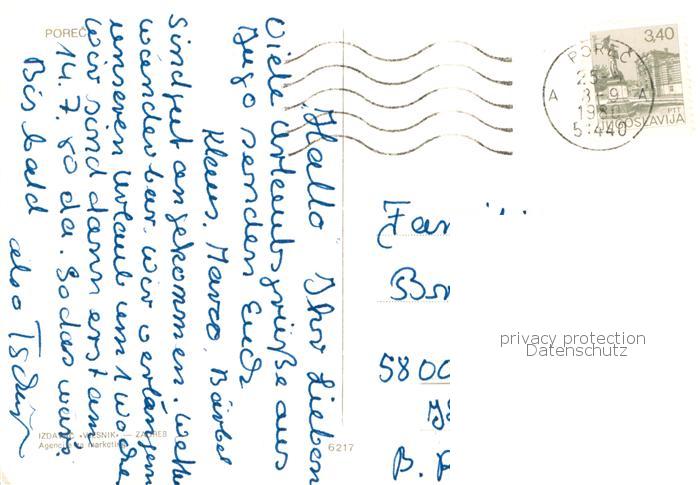 POREČ
Hallo Ihr Lieben
Viele Urlaubsgrüße aus
Jugo senden Euch
Klaus, Marco, Bärbel
Sind gut angekommen. Wetter
wunderbar. Wir verlängern
unseren Urlaub um 1 Woche
Wir sind dann erst am
14.7. 80 da. So das wärs.
Bis bald
also Tschüß
IZDAVAČ «VJESNIK» — ZAGREB
Agencija za marketing
6217
3,40
PTT
JUGOSLAVIJA
POREČ
A 8-9 A
1980
51440
Fam
5800
privacy protection
Datenschutz